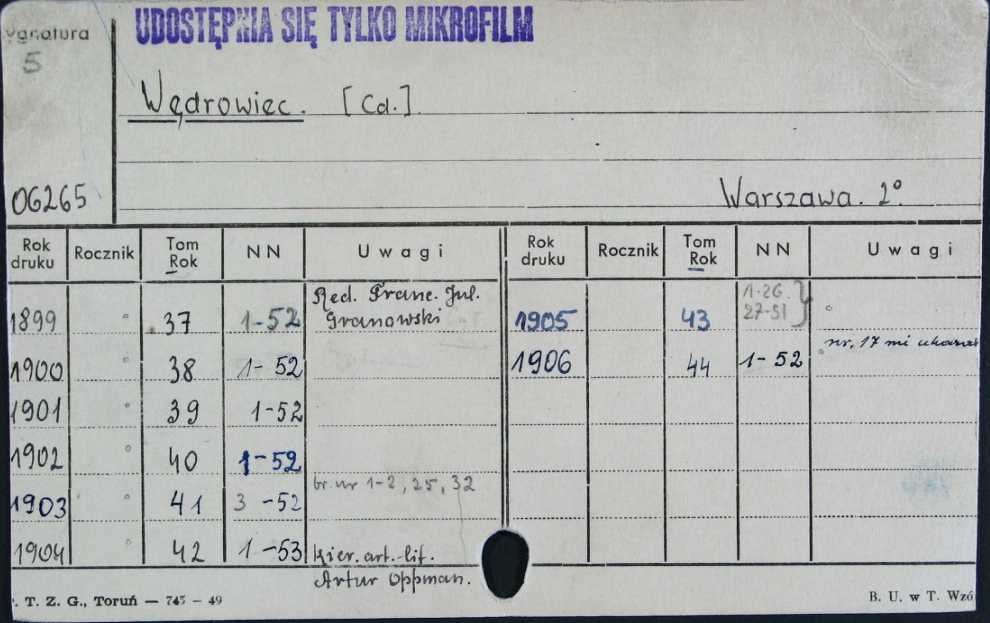 UDOSTĘPNIA SIĘ TYLKO MIKROFILM
ygnatura
5
Wędrowiec. [Cd.].
06265
Warszawa. 2°.
Rok druku Rocznik Tom Rok NN Uwagi Rok druku Rocznik Tom Rok NN Uwagi
1899 " 37 1-52 Red. Franc. Jul. Granowski 1905 43 1-26. 27-51 } "
1900 38 1-52 1906 44 1-52 nr. 17 mi ukazał
1901 " 39 1-52
1902 " 40 1-52
1903 " 41 3-52 br. nr 1-2, 25, 32
1904 " 42 1-53 Kier. art.-lit. Artur Oppman.
. T. Z. G., Toruń — 745 - 49
B. U. w T. Wzó